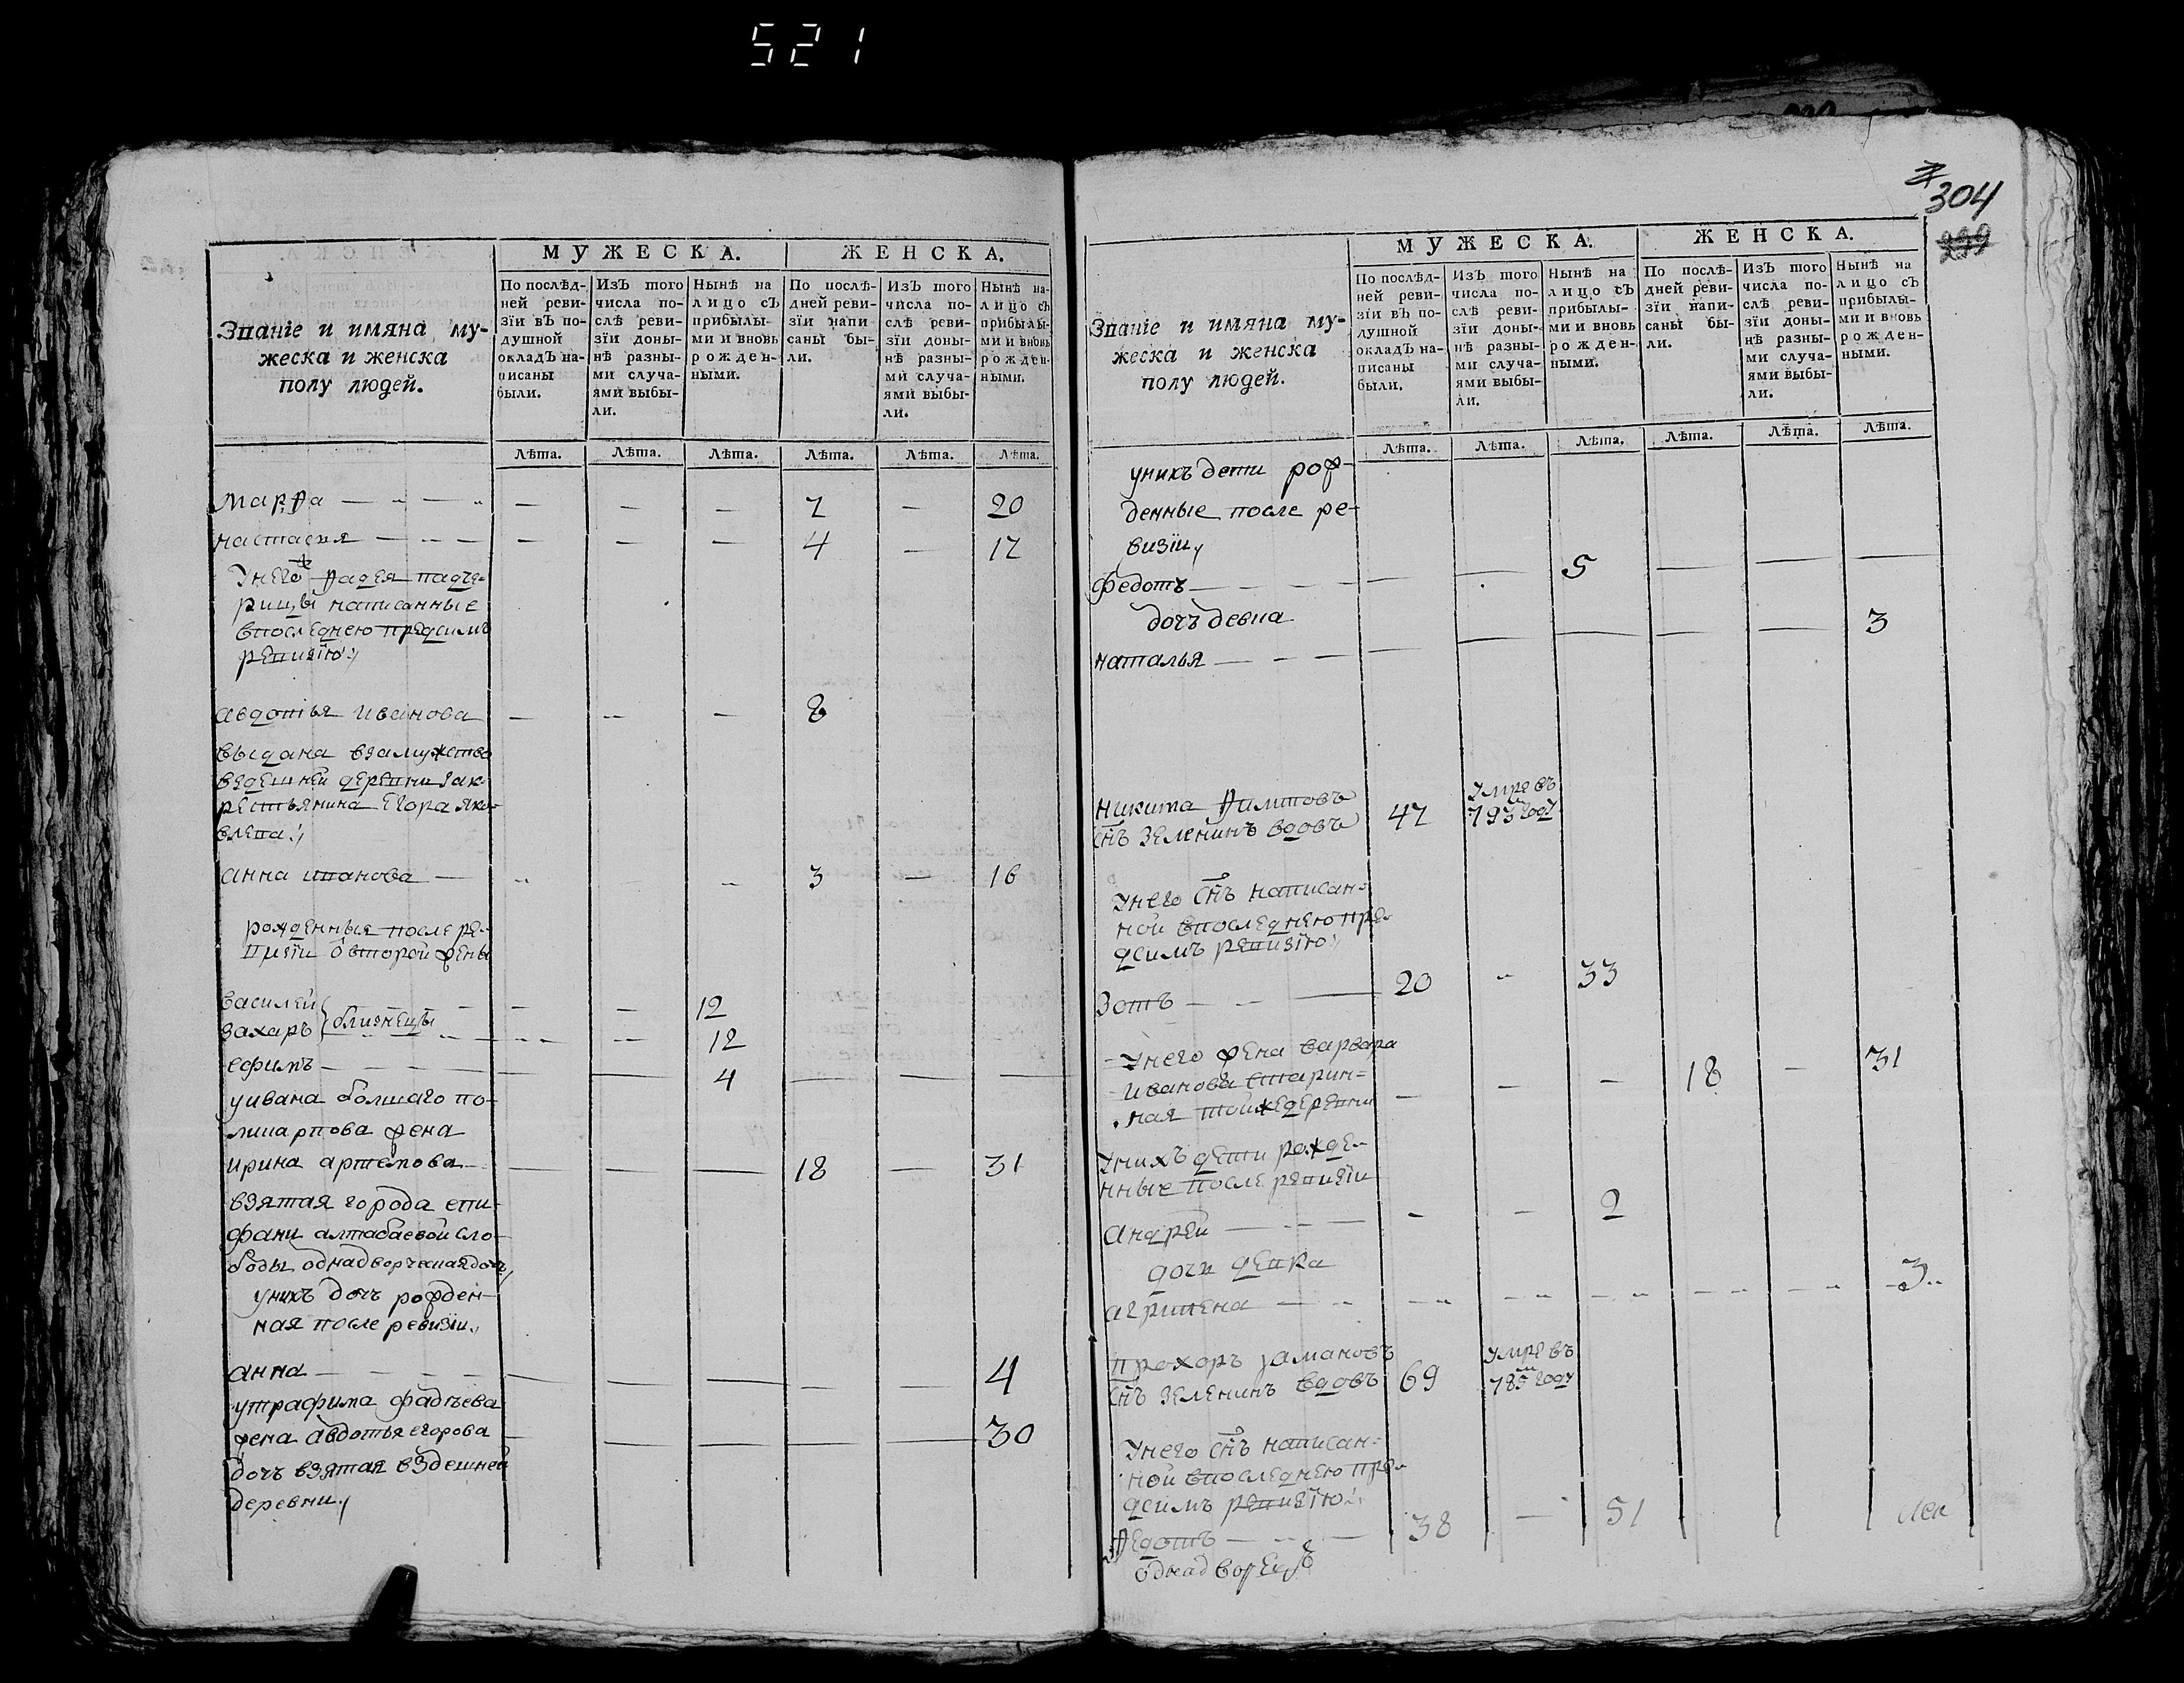 521
МУЖЕСКА. ЖЕНСКА.
Званіе и имяна му-
жеска и женска
полу людей.
По послѣд-
ней реви-
зіи въ по-
душной
окладъ на-
писаны
были.
Изъ того
числа по-
слѣ реви-
зіи доны-
нѣ разны-
ми случа-
ями выбы-
ли.
Нынѣ на
лицо съ
прибылы-
ми и вновь
рожден-
ными.
По послѣ-
дней реви-
зіи напи
саны бы-
ли.
Изъ того
числа по-
слѣ реви-
зіи доны-
нѣ разны-
ми случа-
ями выбы-
ли.
Нынѣ на-
лицо съ
прибылы-
ми и вновь
рожден-
ными.
Лѣта. Лѣта. Лѣта. Лѣта. Лѣта. Лѣта.
марфа — — — — 7 — 20
настасия — — — — 4 — 17
унего фадея падче-
рицы написанные
впоследнею предсимъ
ревизїю
авдотья иванова — — — 8
выдана взамужство
вздешней деревни зак-
рестьянина егора яко-
влева
анна иванова — 3 — 16
рожденныя после ре-
визїи о второй жены
василей — — — 12
захаръ близнецы — — 12
ефимъ — — — 4 — — —
уивана болшаго по-
ликарпова жена
ирина артемова — — — 18 — 31
взятая города епи-
фани алтабаевой сло-
боды однадворческая дочь
унихъ дочь рожден-
ная после ревизїи
анна — — — — — 4
утрафима фадѣева
жена авдотья егорова — — — — — 30
дочь взятая вздешней
деревни
304
299
МУЖЕСКА. ЖЕНСКА.
Званіе и имяна му-
жеска и женска
полу людей.
По послѣд-
ней реви-
зіи въ по-
душной
окладъ на-
писаны
были.
Изъ того
числа по-
слѣ реви-
зіи доны-
нѣ разны-
ми случа-
ями выбы-
ли.
Нынѣ на
лицо съ
прибылы-
ми и вновь
рожден-
ными.
По послѣ-
дней реви-
зіи напи-
саны бы-
ли.
Изъ того
числа по-
слѣ реви-
зіи доны-
нѣ разны-
ми случа-
ями выбы-
ли.
Нынѣ на
лицо съ
прибылы-
ми и вновь
рожден-
ными.
Лѣта. Лѣта. Лѣта. Лѣта. Лѣта. Лѣта.
унихъ дети рож-
денные после ре-
визїи
федотъ — — — 5 — — —
дочь девка
наталья — — — — — — 3
никита фи
снъ зеленинъ вдовъ 47 умре въ 793м году
унего снъ написан-
ной впоследнею пре-
дсимъ ревизїю
зотъ — 20 33
унего жена варвара
иванова старин-
ная тойжедеревни — — — 18 — 31
унихъ дети рожде-
нные после ревизїи
андрей — — — 2
дочи девка
агрипена — — — — — — 3
прохоръ
снъ зеленинъ вдовъ 69 умре въ 785м году
унего снъ написан-
ной впоследнею пре-
дсимъ ревизїю
федотъ — 38 — 51
однадворецъ